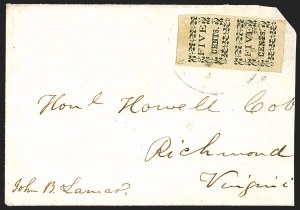 FIVE CENTS. FIVE CENTS.
Honl Howell Cob
Richmond
John B. Lamar. Virgini